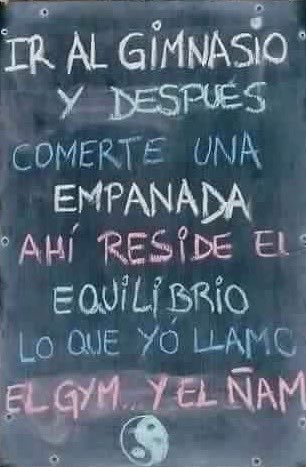 IR AL GIMNASIO
Y DESPUÉS
COMERTE UNA
EMPANADA
AHÍ RESIDE EL
EQUILIBRIO
LO QUE YÓ LLAMO
EL GYM... Y EL ÑAM